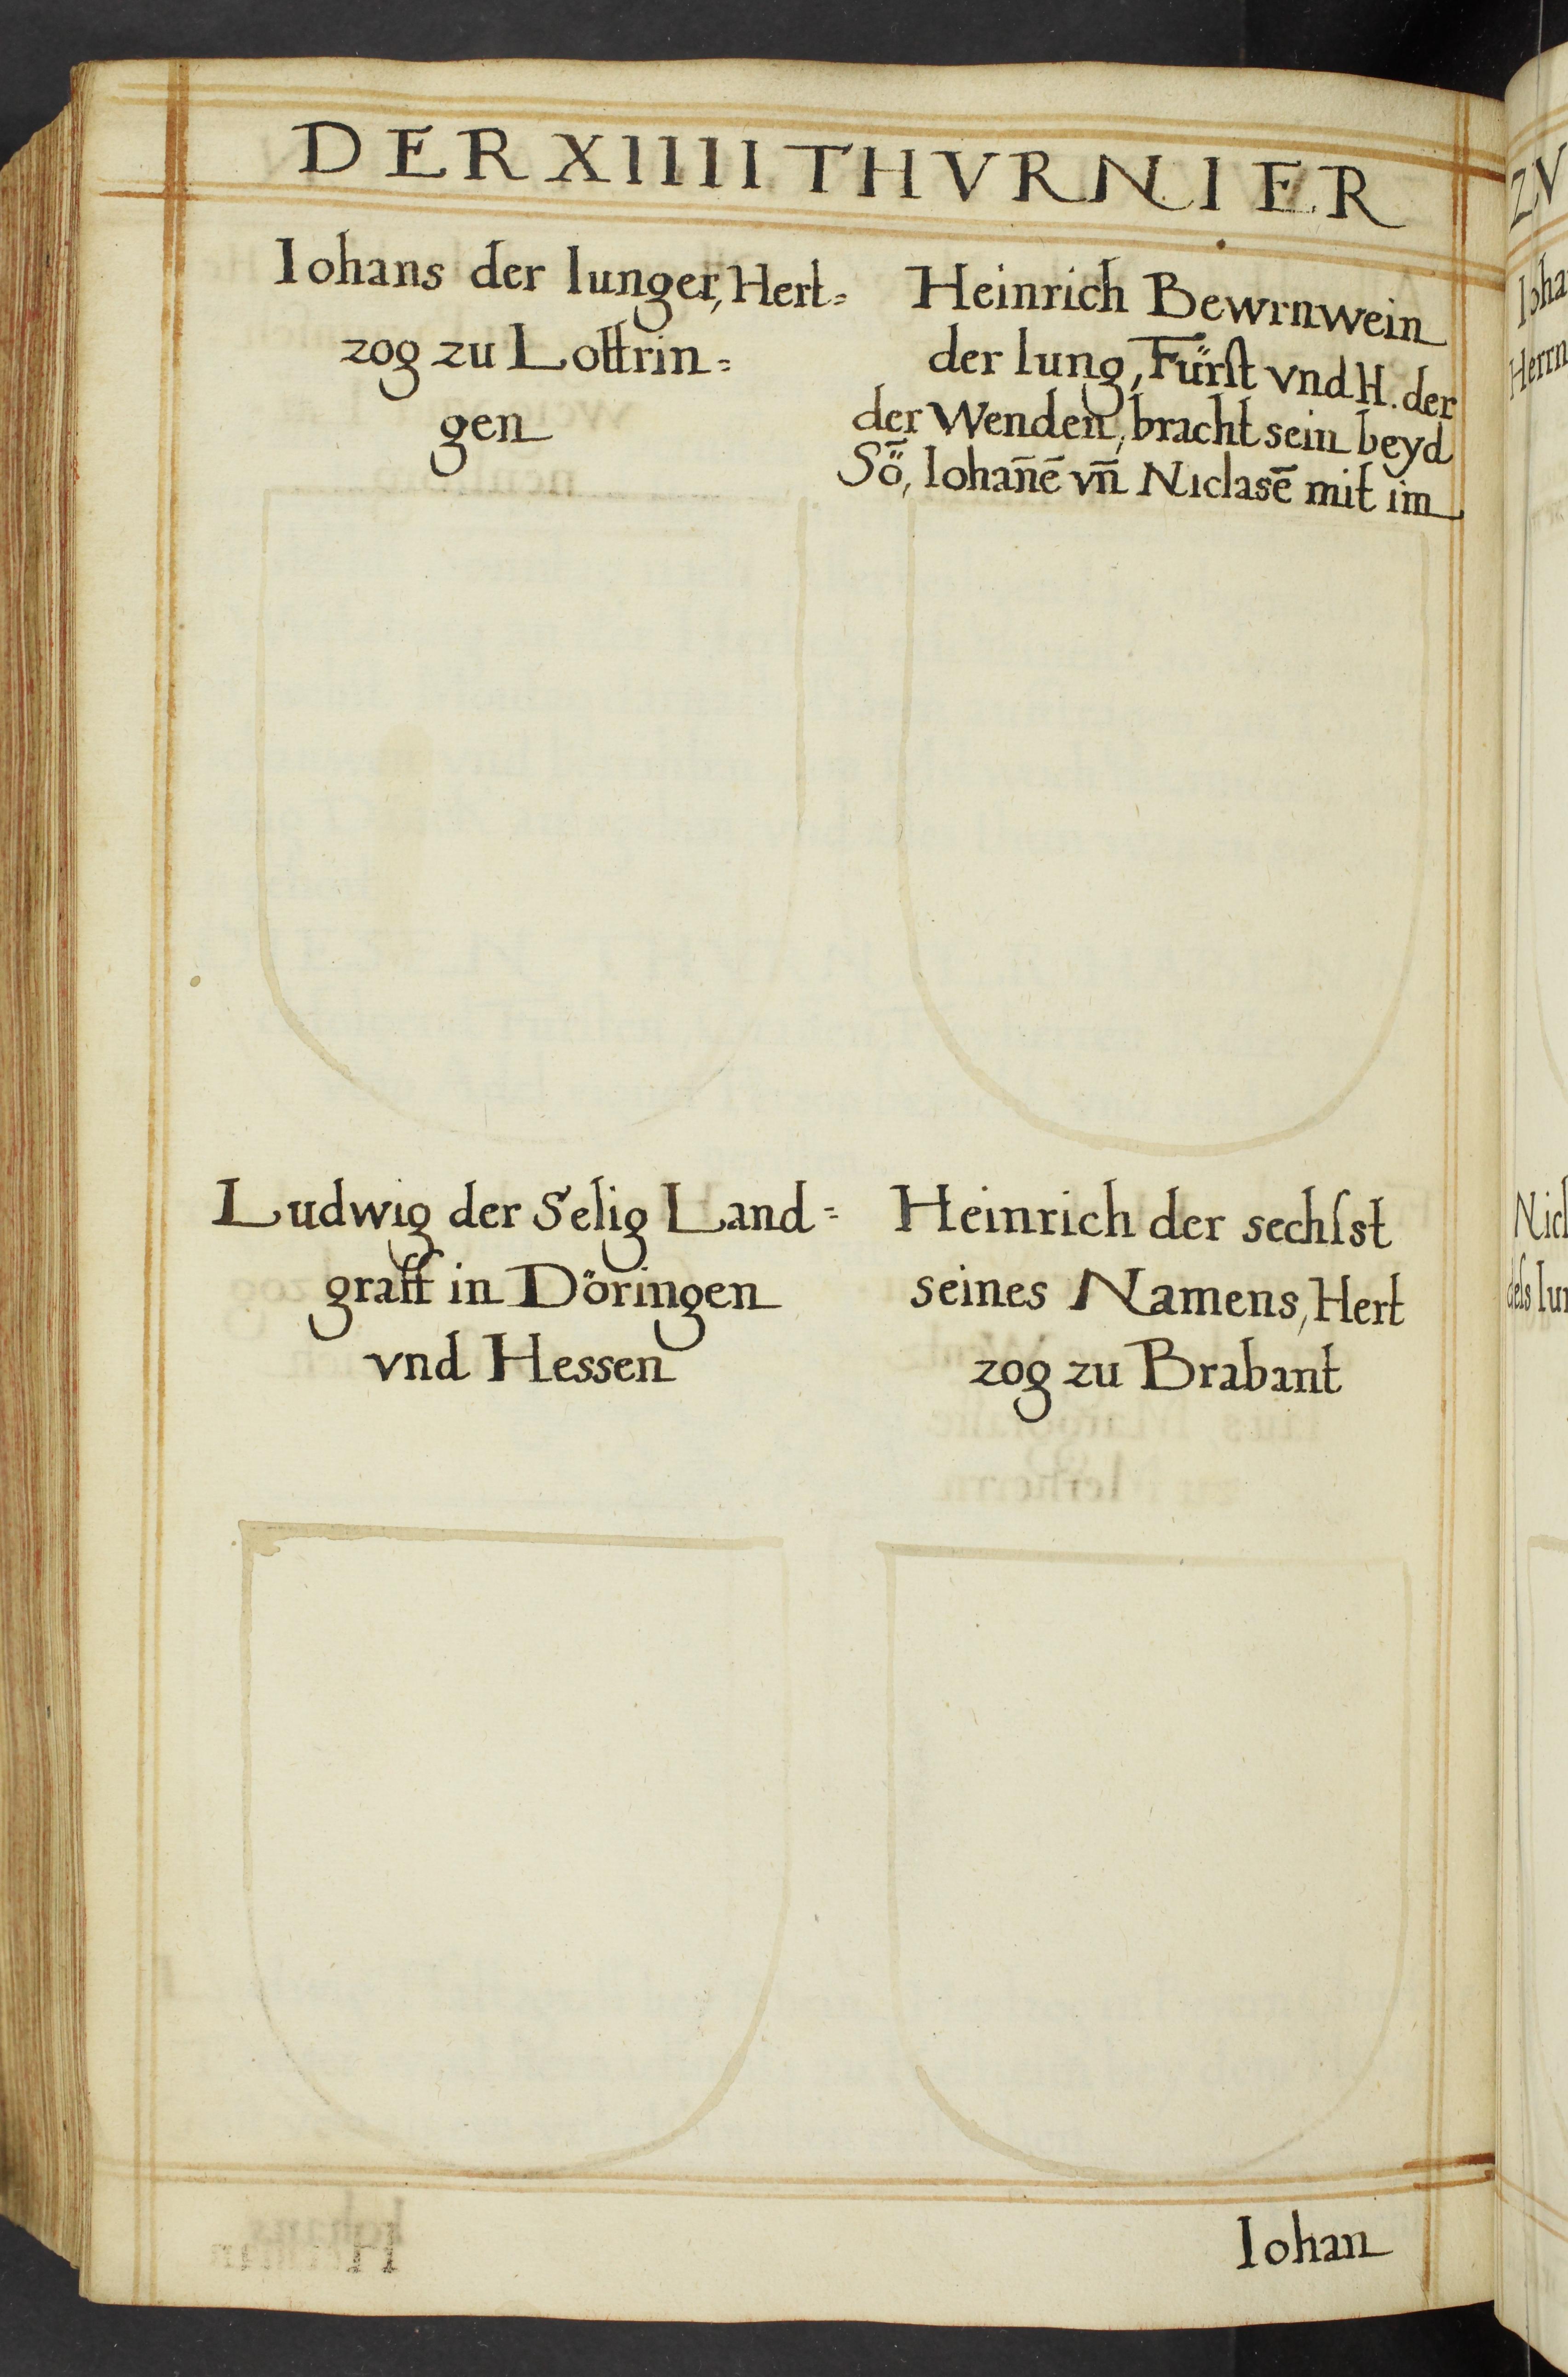 DER XIIIII THVRNIER
Iohans der Iunger, Hert=
zog zu Lottrin=
gen
Heinrich Bewrnwein
der Iung, Fürst vnd H. der
der Wenden, bracht sein beyd
Sȫ, Iohan̄ē vn̄ Niclasē mit im
Ludwig der Selig Land=
graff in Döringen
vnd Hessen
Heinrich der sechſst
seines Namens, Hert
zog zu Brabant
Iohan
ZV
Ioha
Herrn
Nicl